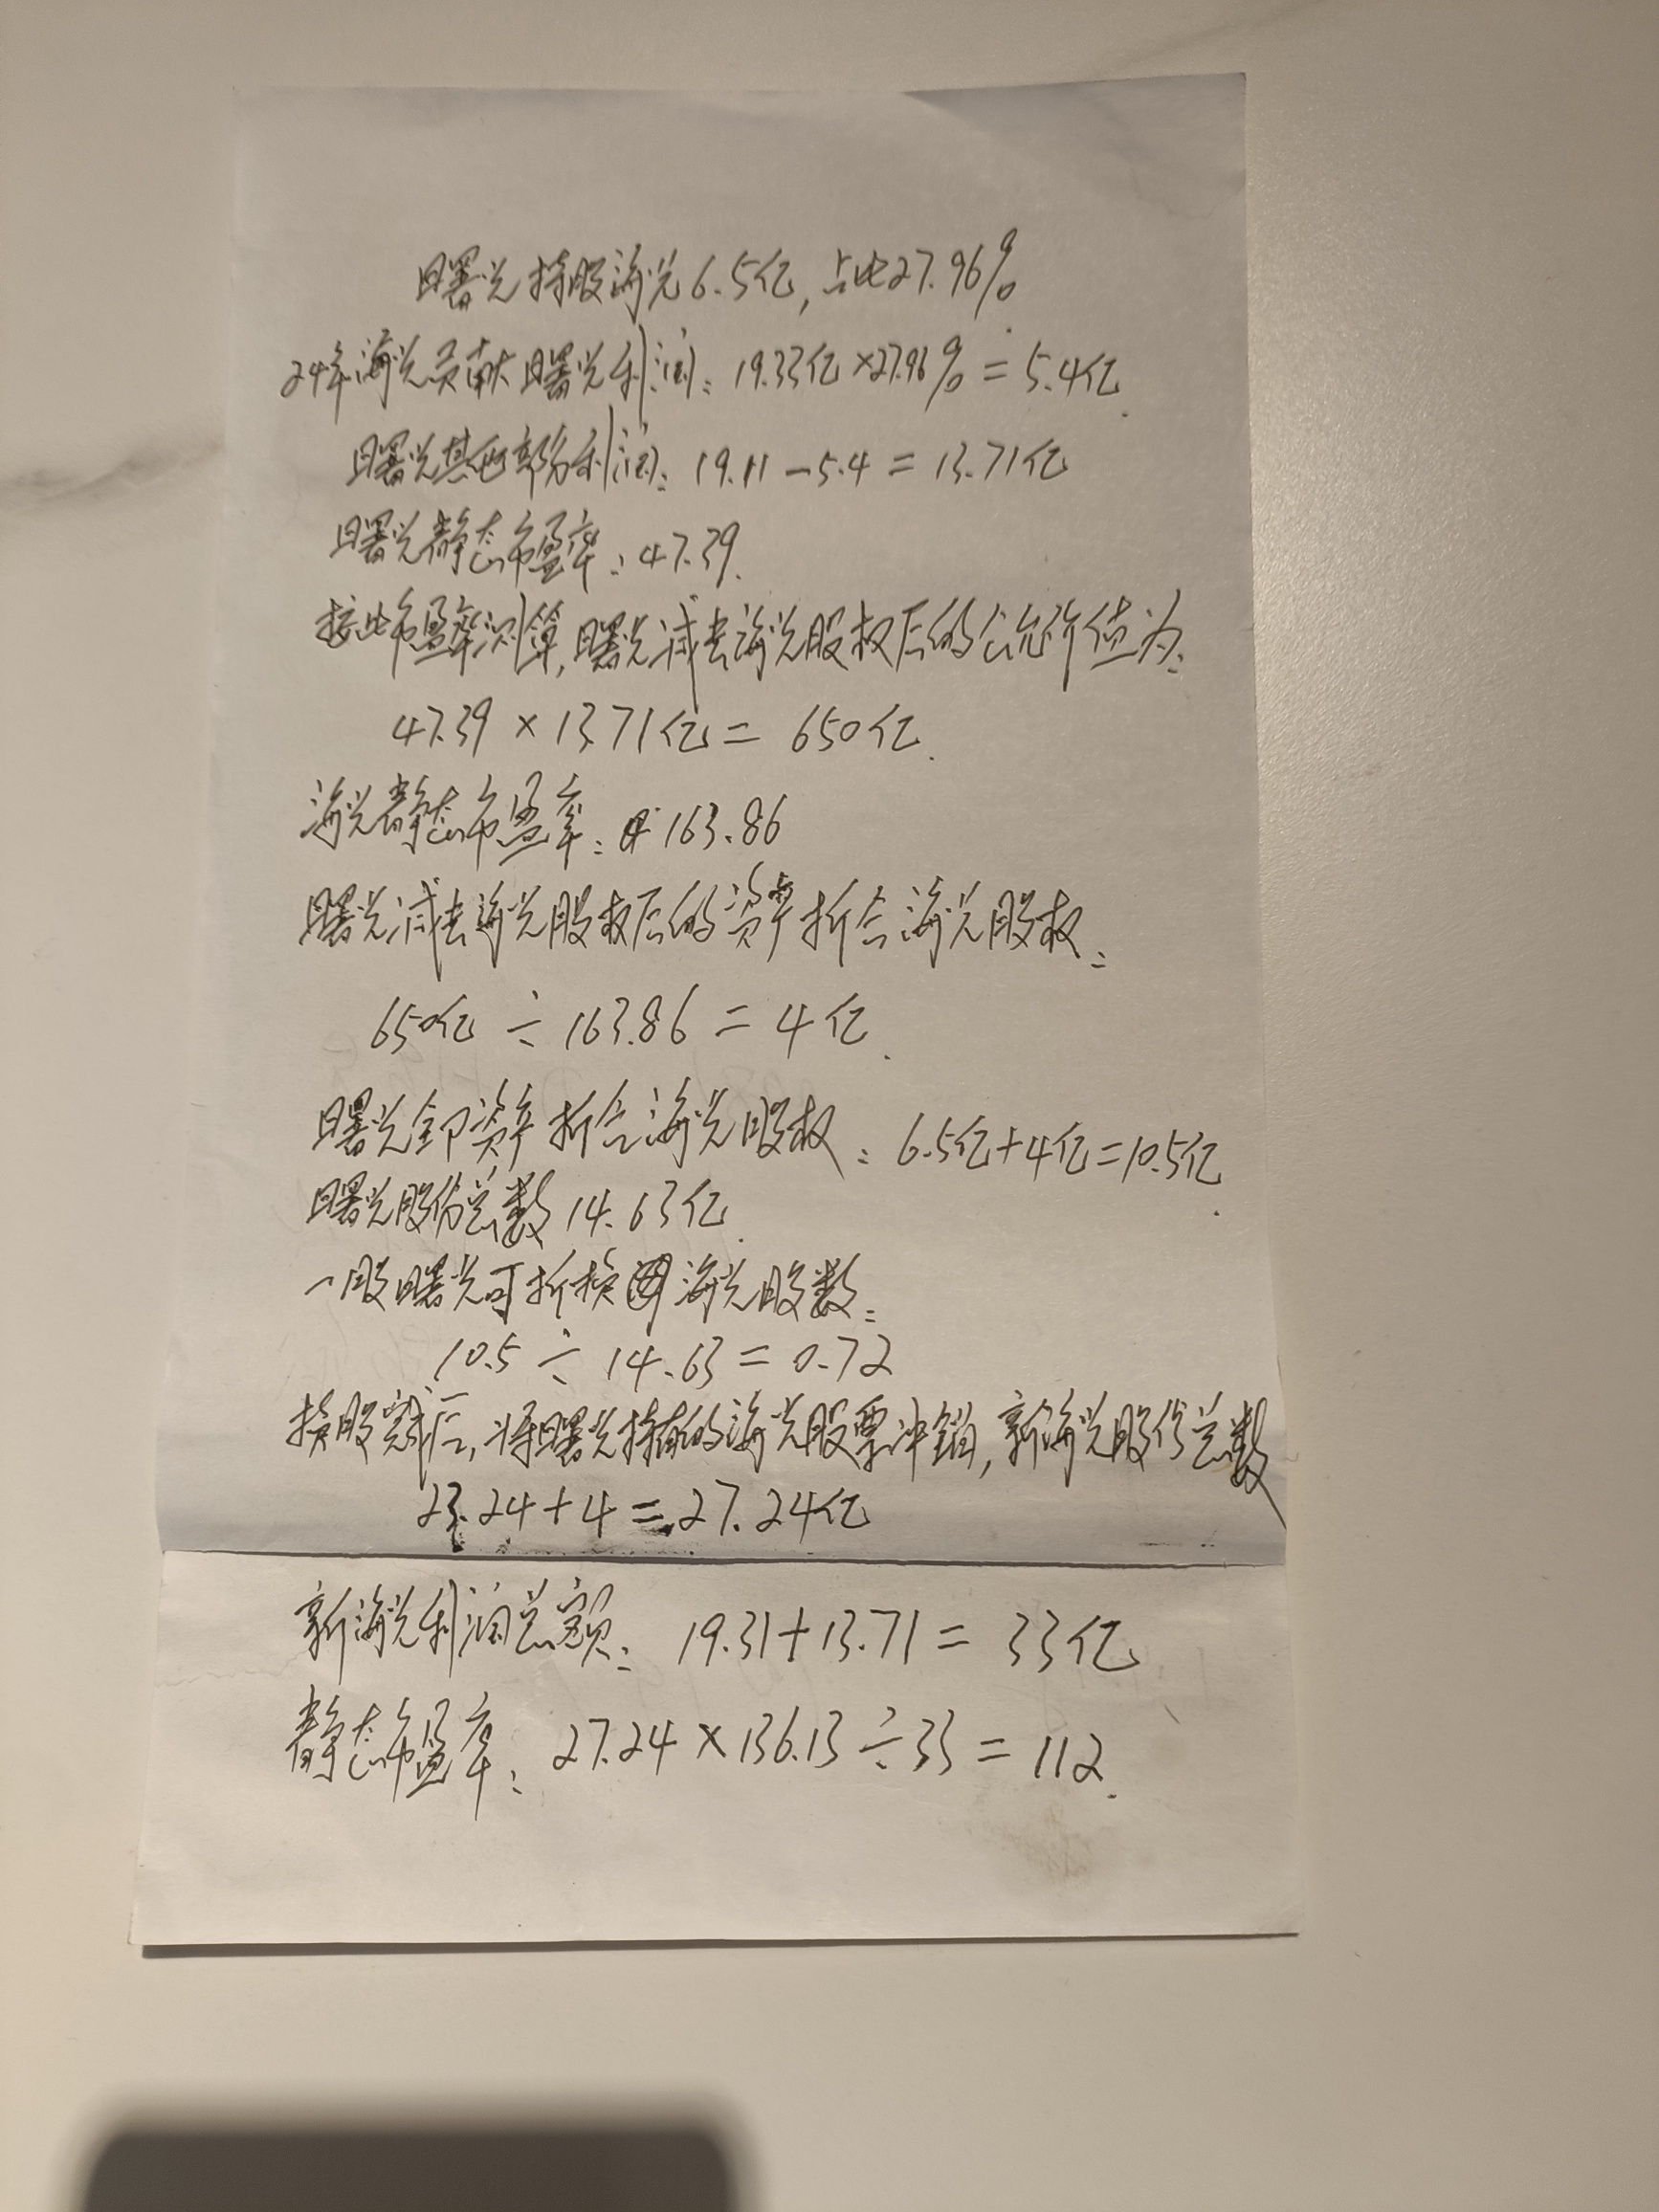 曙光持股海光6.5亿,占比27.96%
24年海光贡献曙光利润:19.33亿×27.96%=5.4亿.
曙光其它部分利润:19.11-5.4=13.71亿
曙光静态市盈率:47.39.
按此市盈率测算,曙光减去海光股权后的公允价值为:
47.39×13.71亿=650亿.
海光静态市盈率:163.86
曙光减去海光股权后的资产折合海光股权:
650亿÷163.86=4亿.
曙光全部资产折合海光股权:6.5亿+4亿=10.5亿.
曙光股份总数14.63亿.
一股曙光可折换海光股数:
10.5÷14.63=0.72
换股完成后,将曙光持有的海光股票冲销,新海光股份总数
23.24+4=27.24亿
新海光利润总额:19.31+13.71=33亿
静态市盈率:27.24×136.13÷33=112.